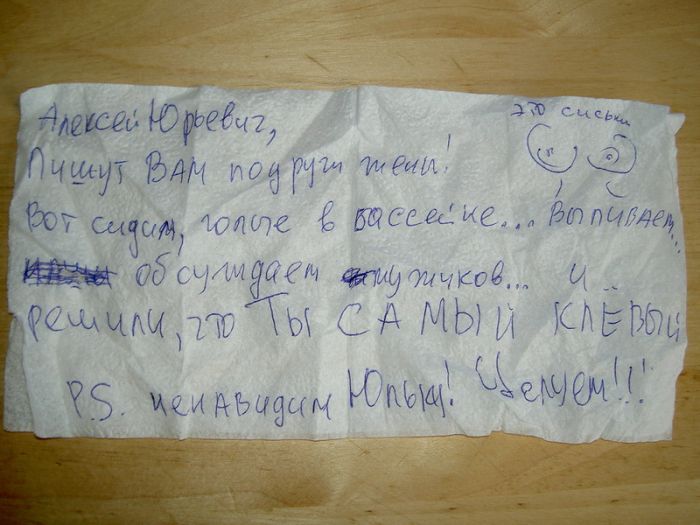 это сиськи
Алексей Юрьевич,
Пишут ВАМ подруги жены!
Вот сидим, голые в бассейне... Выпиваем...
обсуждаем мужиков... и..
решили, что ТЫ САМЫЙ КЛЕВЫЙ
P.S. ненавидим Юльку! Целуем!!!